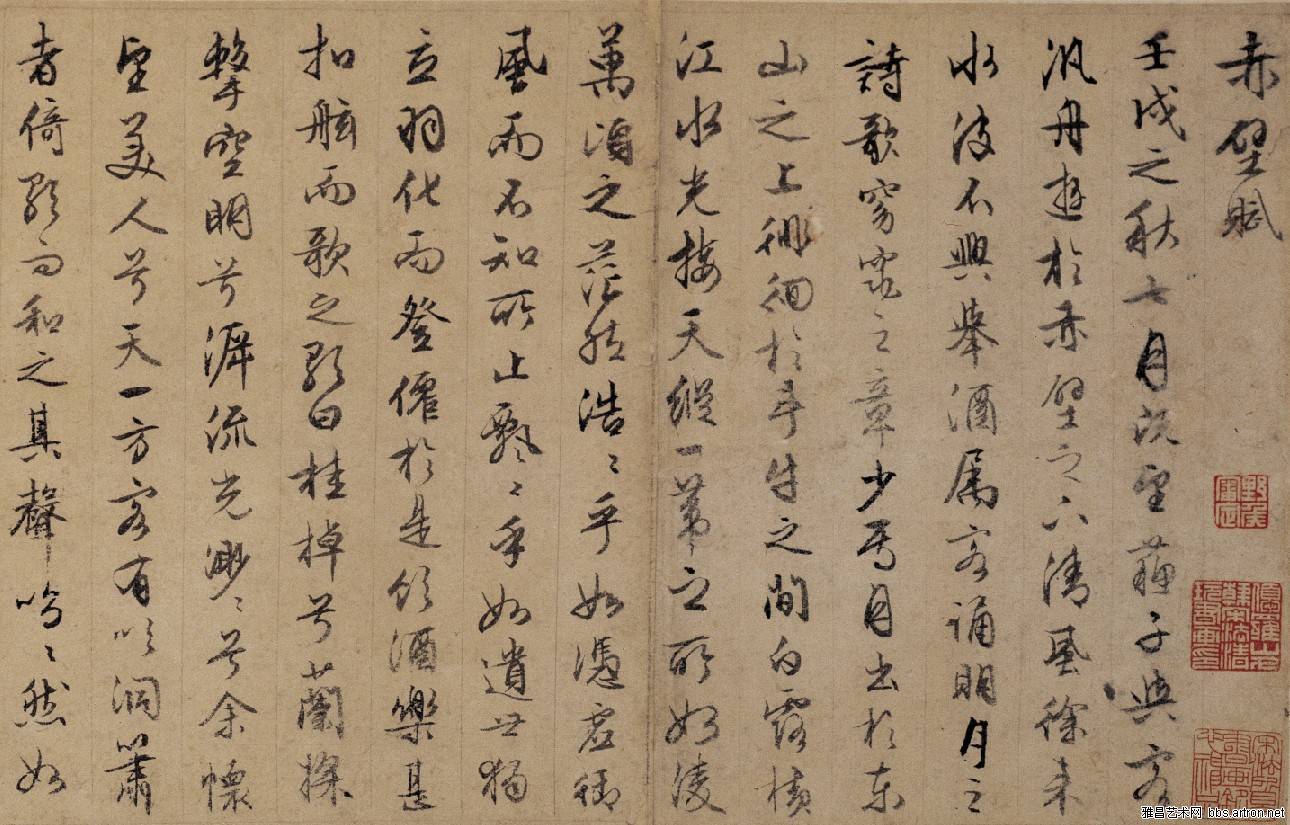 赤壁賦
壬戌之秋七月既望蘇子與客
汎舟遊於赤壁之下清風徐来
水波不興舉酒属客誦明月之
詩歌窈窕之章少焉月出於東
山之上徘徊於斗牛之間白露横
江水光接天縱一葦之所如凌
萬頃之茫然浩〻乎如憑虚御
風而不知所止飄〻乎如遺世獨
立羽化而登僊於是飲酒樂甚
扣舷而歌之歌曰桂棹兮蘭槳
擊空明兮泝流光渺〻兮余懷
望美人兮天一方客有吹洞簫
者倚歌而和之其聲嗚〻然如
雅昌艺术网 bbs.artron.net